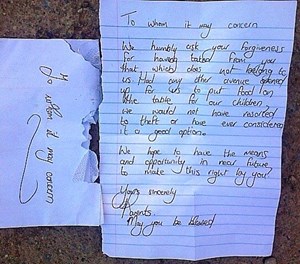 To whom it may concern
We humbly ask your forgiveness
for having taken from you
that, which does not belong to
us. Had any other avenue opened
up for us to put food on
the table for our children,
we would not have resorted
to theft or have ever considered
it a good option.
We hope to have the means
and opportunity in near future
to make this right by you.
Yours sincerely
Parents.
May you be blessed
To whom it may concern